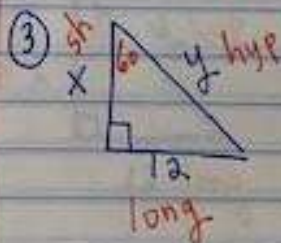 3
sh
60
x
y hyp
12
long